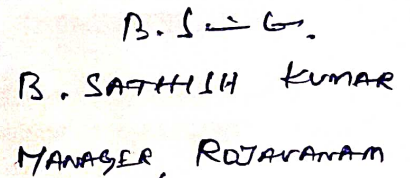 B. SATHISH KUMAR
MANAGER, ROJAVANAM